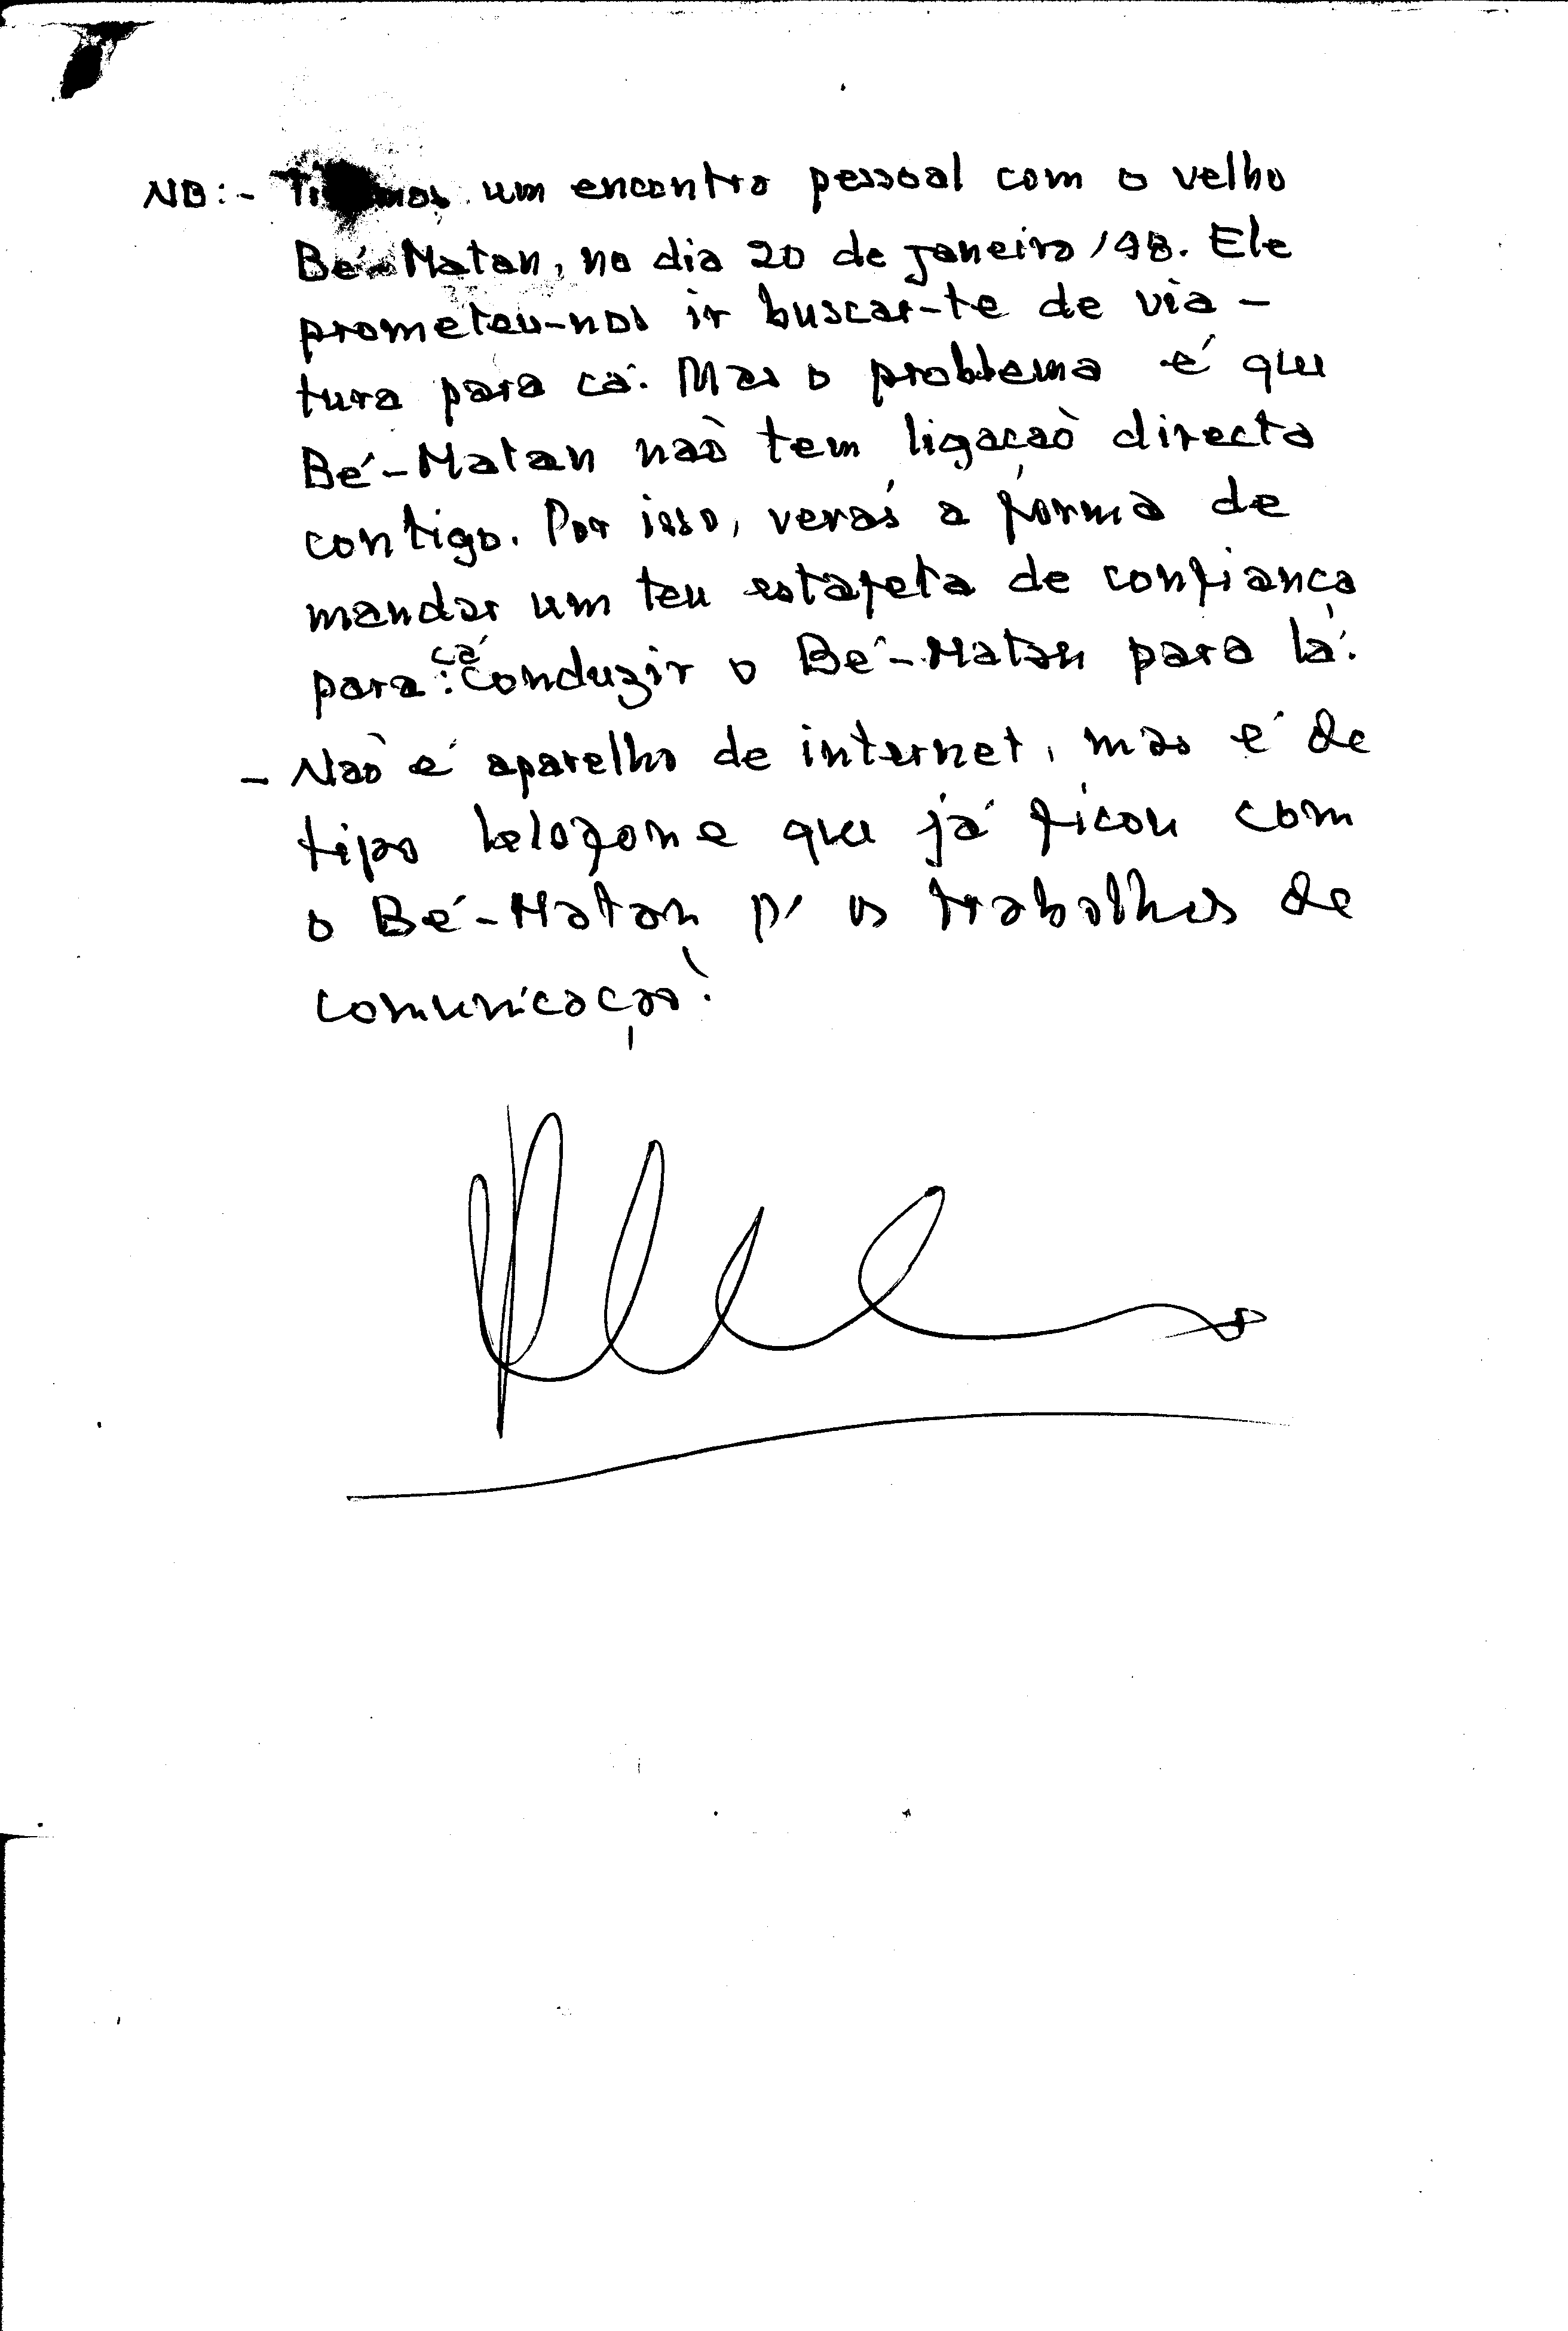 NB:- um encontro pessoal com o velho
Bé-Matan, no dia 20 de Janeiro /98. Ele
prometeu-nos ir buscar-te de via-
tura para cá. Mas o problema é que
Bé-Matan não tem ligação directa
contigo. Por isso, verás a forma de
mandar um teu estafeta de confiança
para cá conduzir o Bé-Matan para lá.
- Não é aparelho de internet, mas é de
tipo telefone que já ficou com
o Bé-Matan p' os trabalhos de
comunicação.